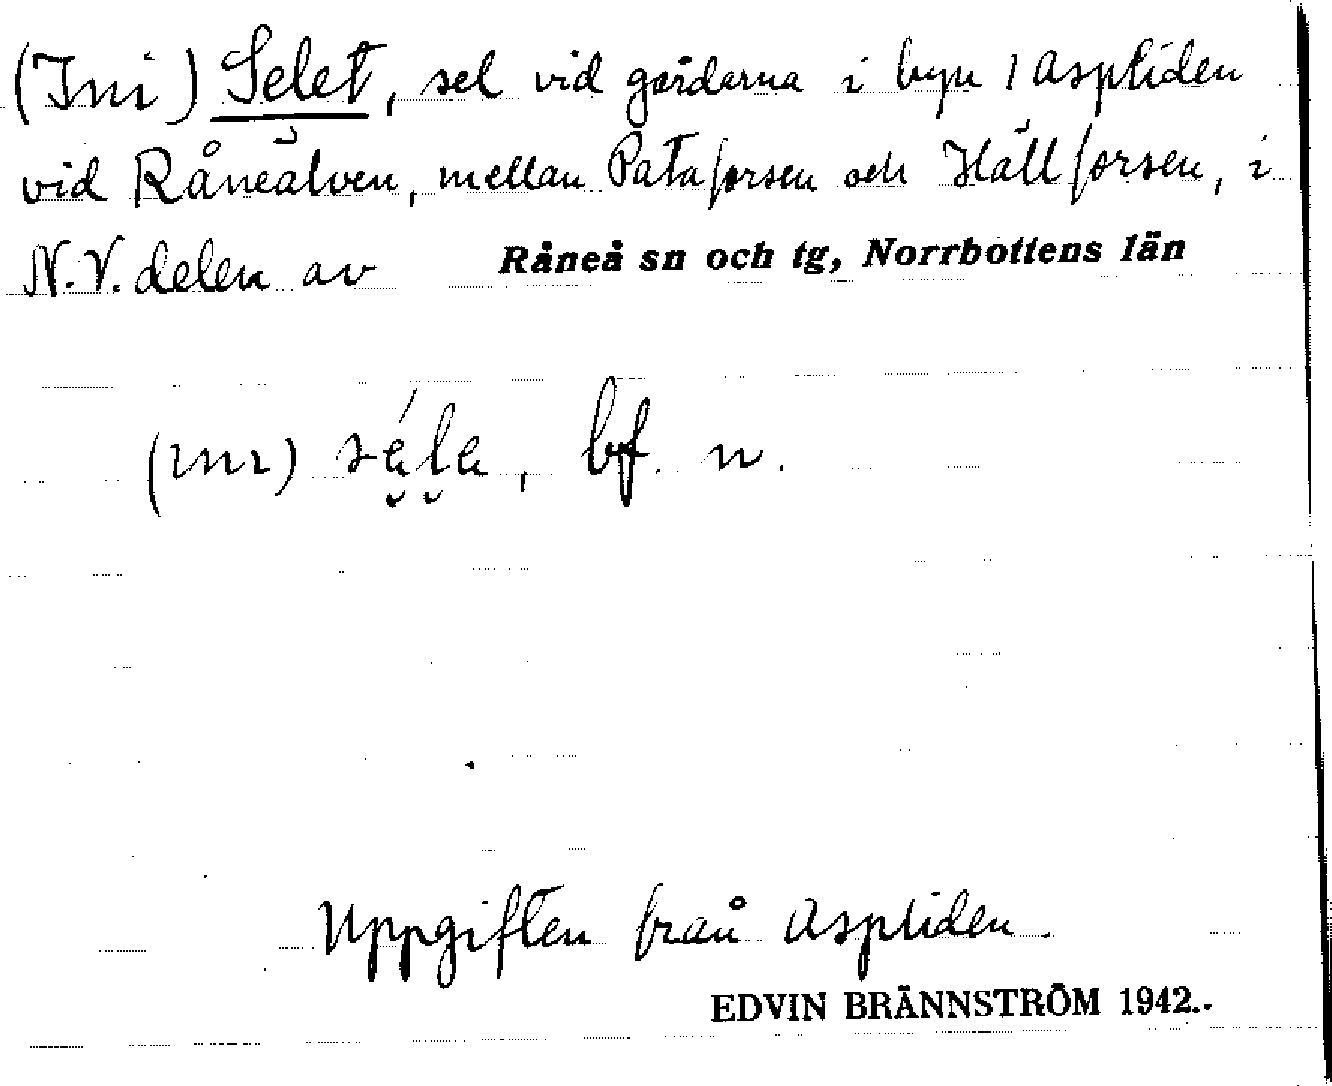 (Ini) Selet, sel vid gårdarna i byn 1 Aspliden
vid Råneälven, mellan Pataforsen och Hällforsen, i
N.V. delen av Råneå sn och tg, Norrbottens län
(ɪnɪ) , bf. n.
Uppgiften från Aspliden.
EDVIN BRÄNNSTRÖM 1942.-